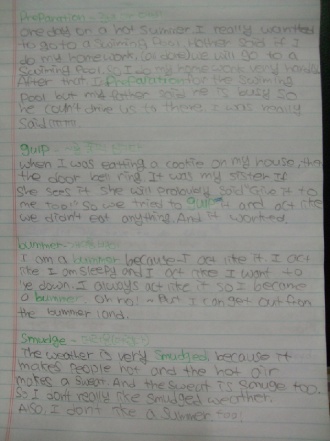 Preparation -
One day on a hot summer I really wanted
to go to a swiming pool. Mother said if I
do my homework, (all done) we will go to a
swiming Pool. So I do my home work very hardly.
After that, I Preparation for the swiming
Pool but my father said he is busy so
he coun't drive us to there. I was really
said
gulp -
When I was eatting a cookie on my house, the
the door bell ring. It was my sister. If
she sees it she will probably said "Give it to
me too!" So we tried to gulp it and act like
we didn't eat anything. And it worked.
bummer -
I am a bummer because I act like it. I act
like I am sleepy and I act like I want to
lie down. I always act like it so I became
a bummer. Oh no! ~ But I can get out from
the bummer land.
Smudge -
The weather is very smudged, because it
makes people hot and the hot air
makes a sweat. And the sweat is smuge too.
So I don't really like smudged weather.
Also, I don't like a summer too!